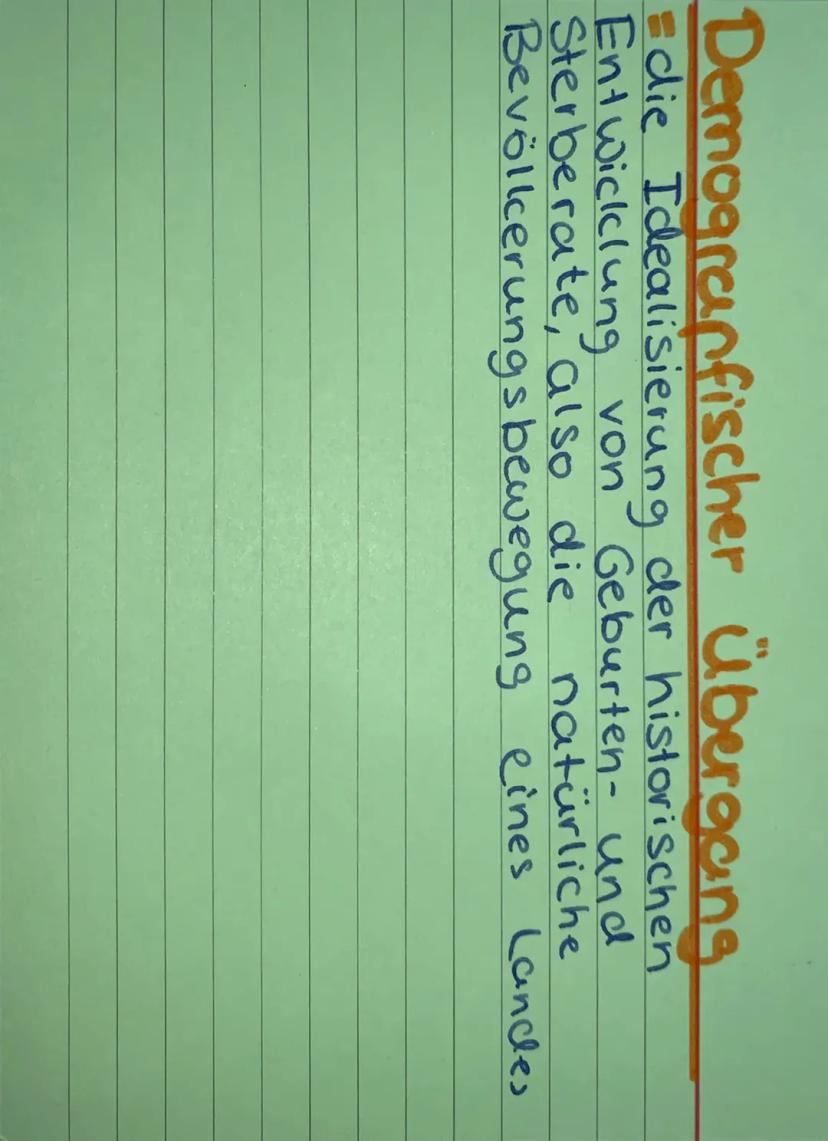 Demografischer Übergang
= die Idealisierung der historischen
Entwicklung von Geburten- und
Sterberate, also die natürliche
Bevölkerungsbewegung eines Landes